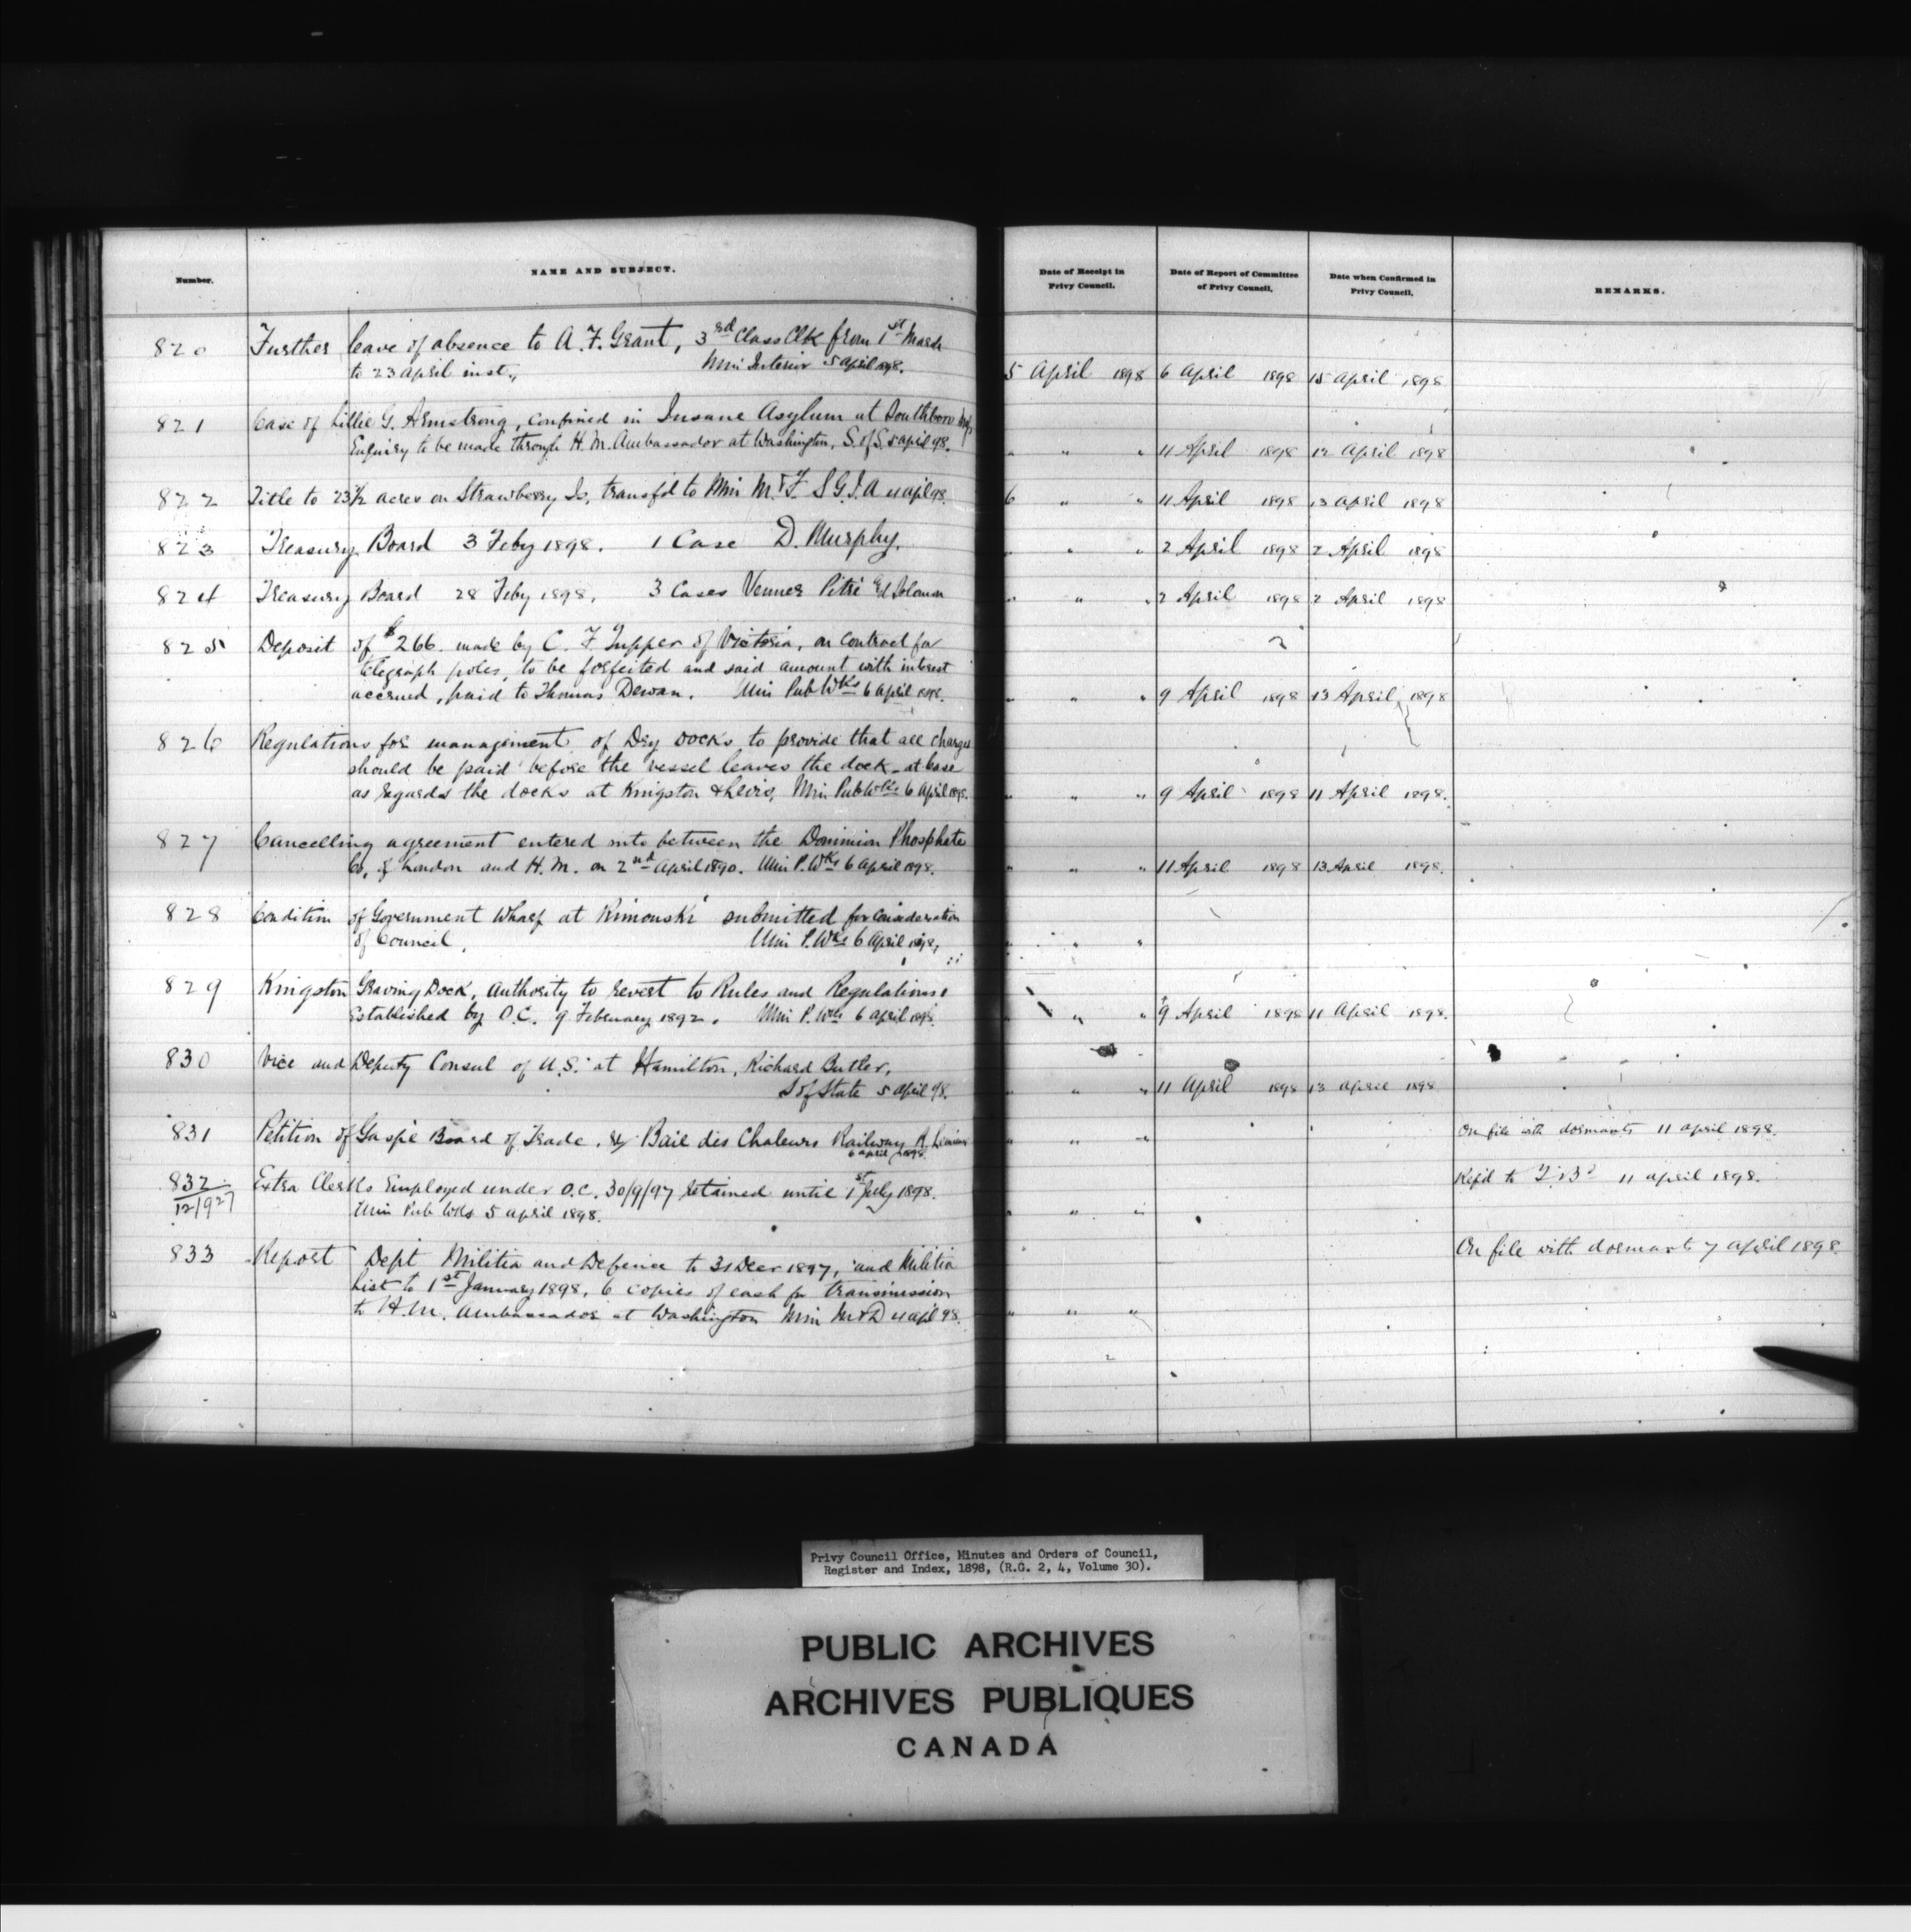 Number. NAME AND SUBJECT. Date of Receipt in Privy Council. Date of Report of Committee of Privy Council. Date when Confirmed in Privy Council. REMARKS.
820 Further leave of absence to A. F. Grant, 3rd Class Clk from 1st March
to 23 April inst., Min Interior 5 april 1898. 5 April 1898 6 April 1898 15 April 1898
821 Case of Lillie G. Armstrong, confined in Insane Asylum at Southboro
Enquiry to be made through H. M. Ambassador at Washington, S. of S. 5 april 98. " " " 11 April 1898 12 April 1898
822 Title to 23½ acres on Strawberry Is, transf'd to Min M. & F. S G. I. A 4 apl 98. 6 " " 11 April 1898 13 April 1898
823 Treasury Board 3 Feby 1898. 1 Case D. Murphy. " " " 2 April 1898 2 April 1898
824 Treasury Board 28 Feby 1898, 3 Cases Venner Pitre " " " 2 April 1898 2 April 1898
825 Deposit of $266. made by C. F Tupper of Victoria, on contract for
telegraph poles, to be forfeited and said amount with interest
accrued, paid to Thomas Dewan. Min Pub Wks 6 April 1898. " " " 9 April 1898 13 April 1898
826 Regulations for management of Dry Docks to provide that all charges
should be paid before the vessel leaves the dock - at base
as regards the docks at Kingston & Levis, Min Pub Wks 6 April 1898. " " " 9 April 1898 11 April 1898.
827 Cancelling agreement entered into between the Dominion Phosphate
Co, of London and H. M. on 2nd April 1890. Min P. Wks 6 April 1898. " " " 11 April 1898 13 April 1898.
828 Condition of Government Wharf at Rimouski submitted for consideration
of Council, Min P. Wks 6 April 1898, " " "
829 Kingston Graving Dock, authority to revert to Rules and Regulations
Established by O. C. 9 February 1892. Min P. Wks 6 April 1898. " " " 9 April 1898 11 April 1898.
830 Vice and Deputy Consul of U. S. at Hamilton, Richard Butler,
S of State 5 april 98. " " " 11 April 1898 13 April 1898
831 Petition of Gaspé Board of Trade, re Baie des Chaleurs Railway " " " On file with dormants 11 april 1898.
6 april 1898.
832 Extra Clerks Employed under O. C. 30/9/97 retained until 1st July 1898. Refd to T. Bd 11 april 1898.
12/1927 Min Pub Wks 5 april 1898. " " "
833 Report Dept Militia and Defence to 31 Decr 1897, and Militia On file with dormants 7 april 1898
List to 1st January 1898, 6 copies of each for transmission
to H. M. Ambassador at Washington Min M & D 4 apl 98. " " "
Privy Council Office, Minutes and Orders of Council,
Register and Index, 1898, (R.G. 2, 4, Volume 30).
PUBLIC ARCHIVES
ARCHIVES PUBLIQUES
CANADA